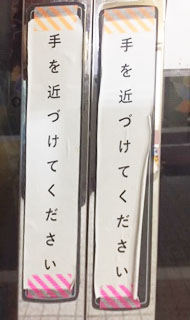 手を近づけてください
手を近づけてください